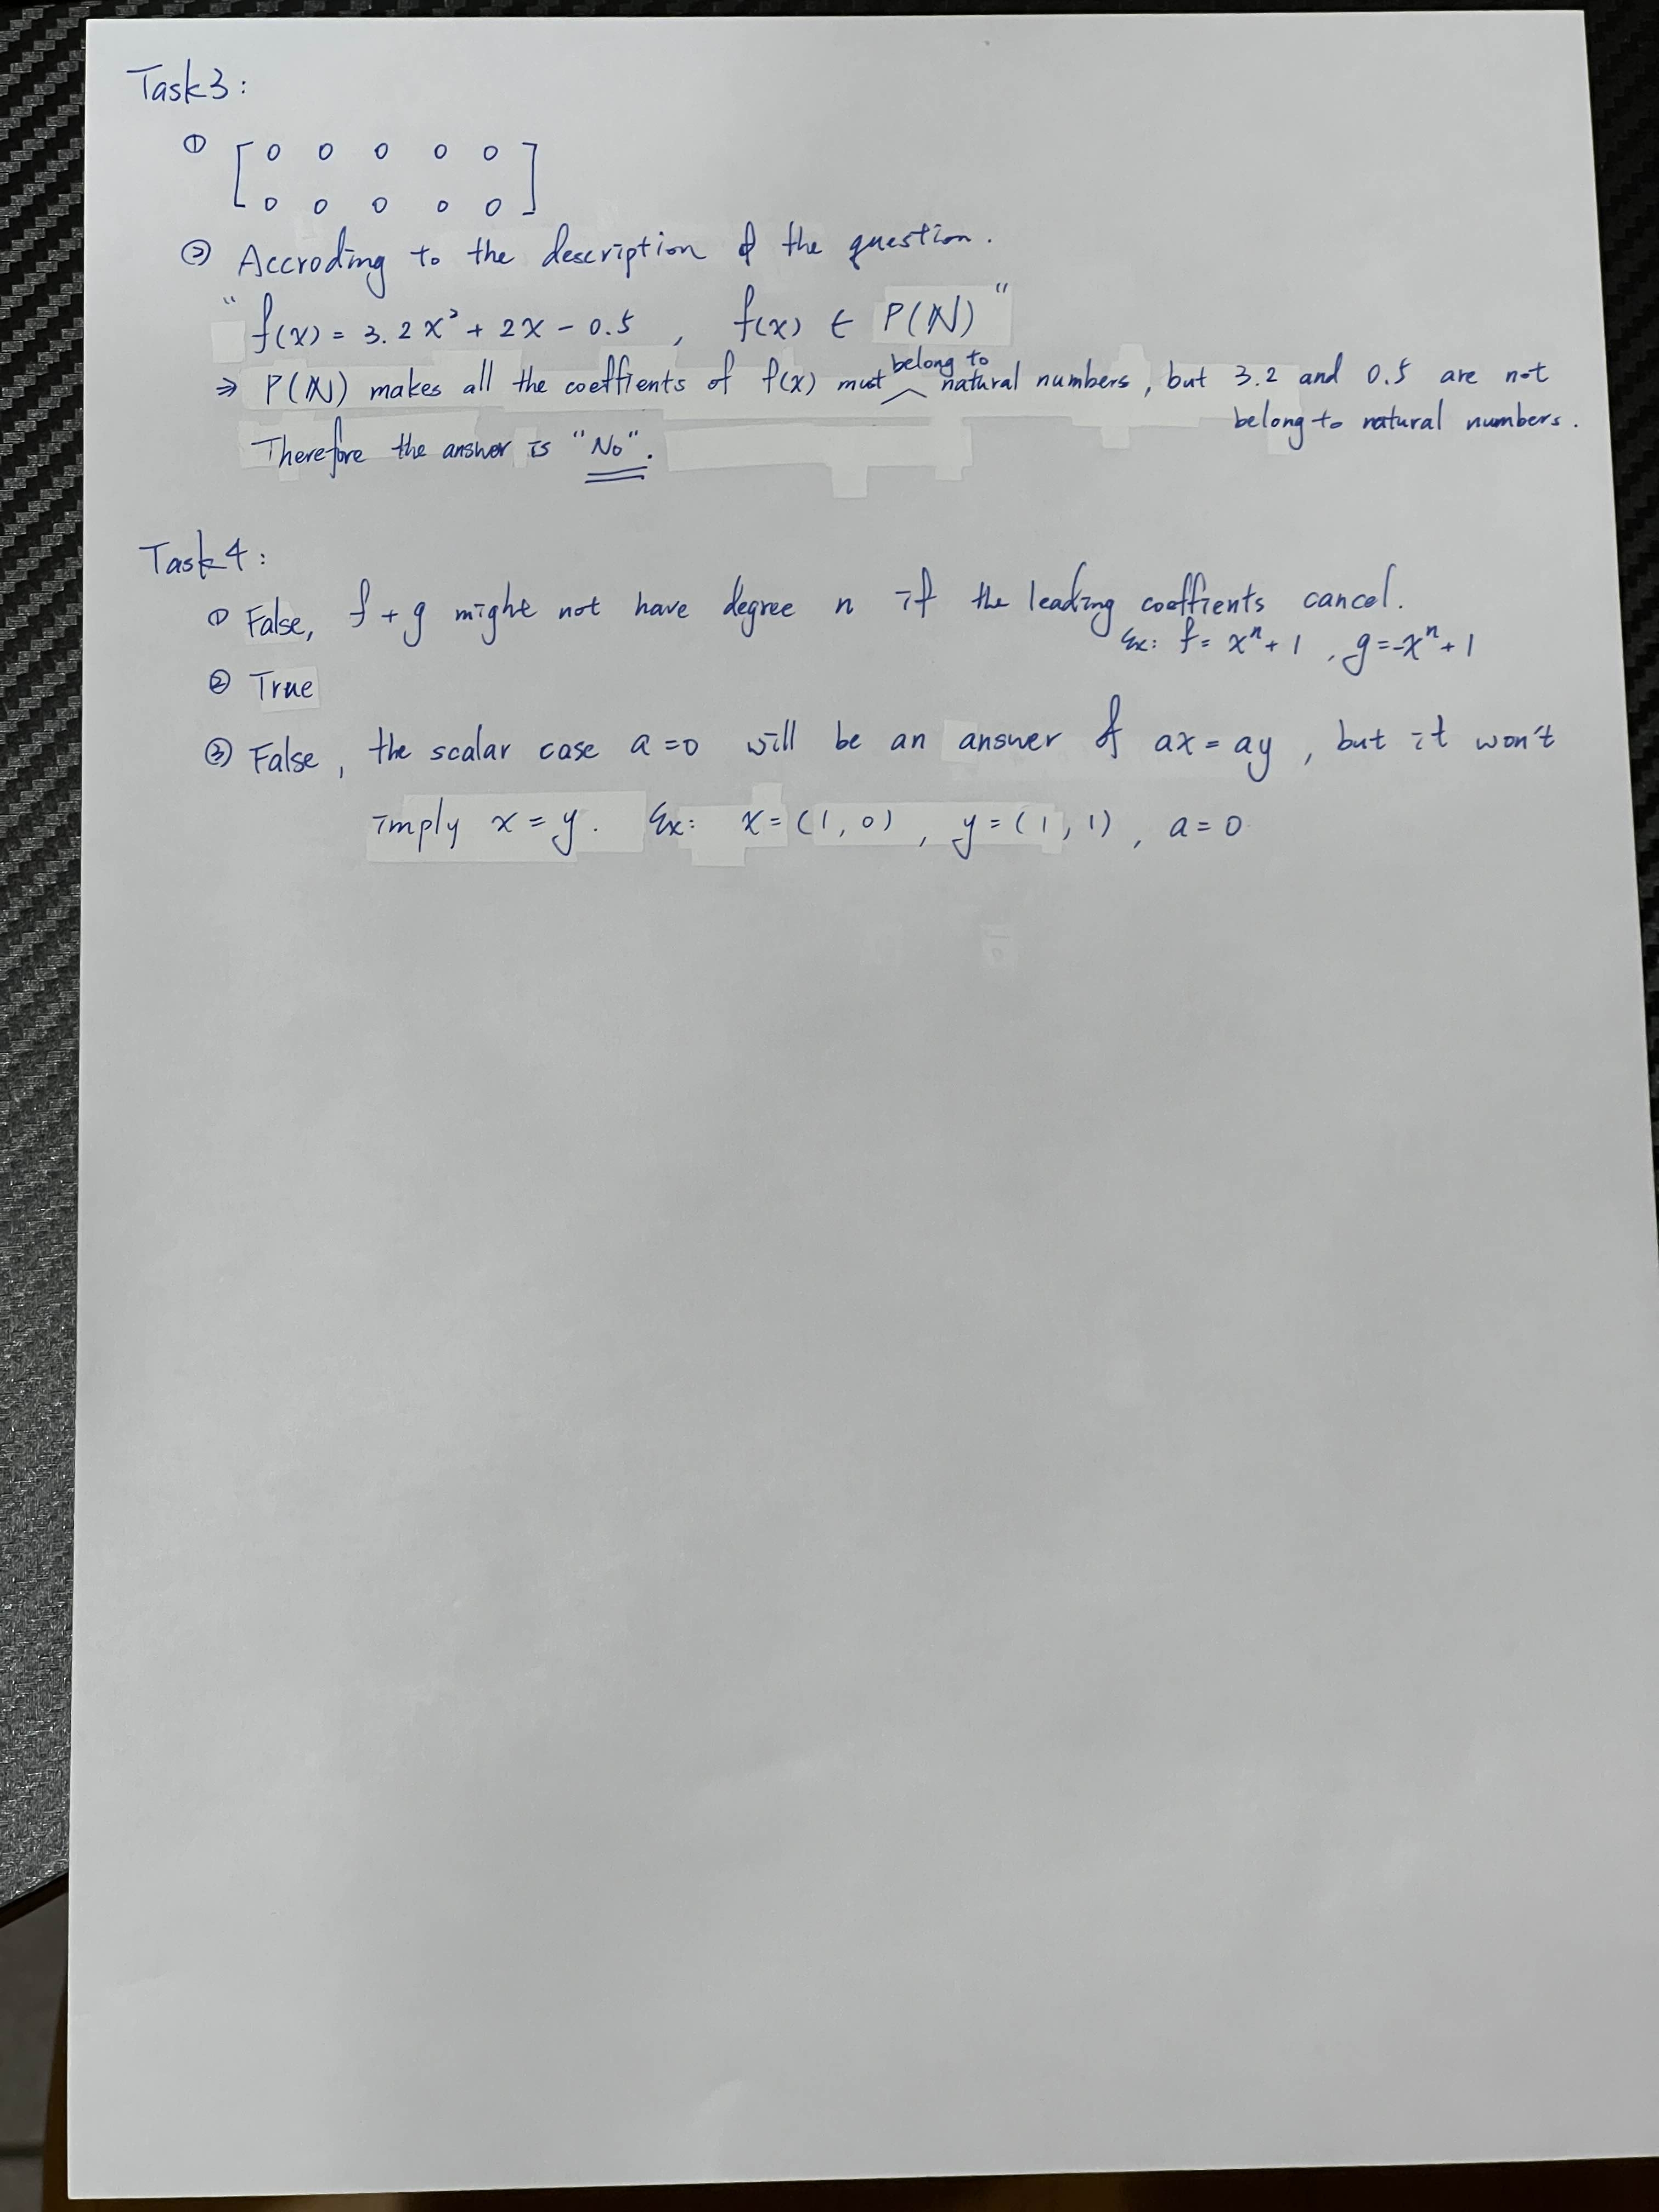 Task3:
① [ 0 0 0 0 0 ]
[ 0 0 0 0 0 ]
② Accroding to the description of the question.
"f(x) = 3.2x² + 2x - 0.5 , f(x) ∈ P(ℕ)"
⇒ P(ℕ) makes all the coeffients of f(x) must belong to natural numbers, but 3.2 and 0.5 are not
belong to natural numbers.
Therefore the answer is "No".
Task4:
① False, f+g might not have degree n if the leading coeffients cancel.
Ex: f = xⁿ+1 , g = -xⁿ+1
② True
③ False, the scalar case a=0 will be an answer of ax = ay , but it won't
imply x = y. Ex: x = (1, 0) , y = (1, 1) , a = 0